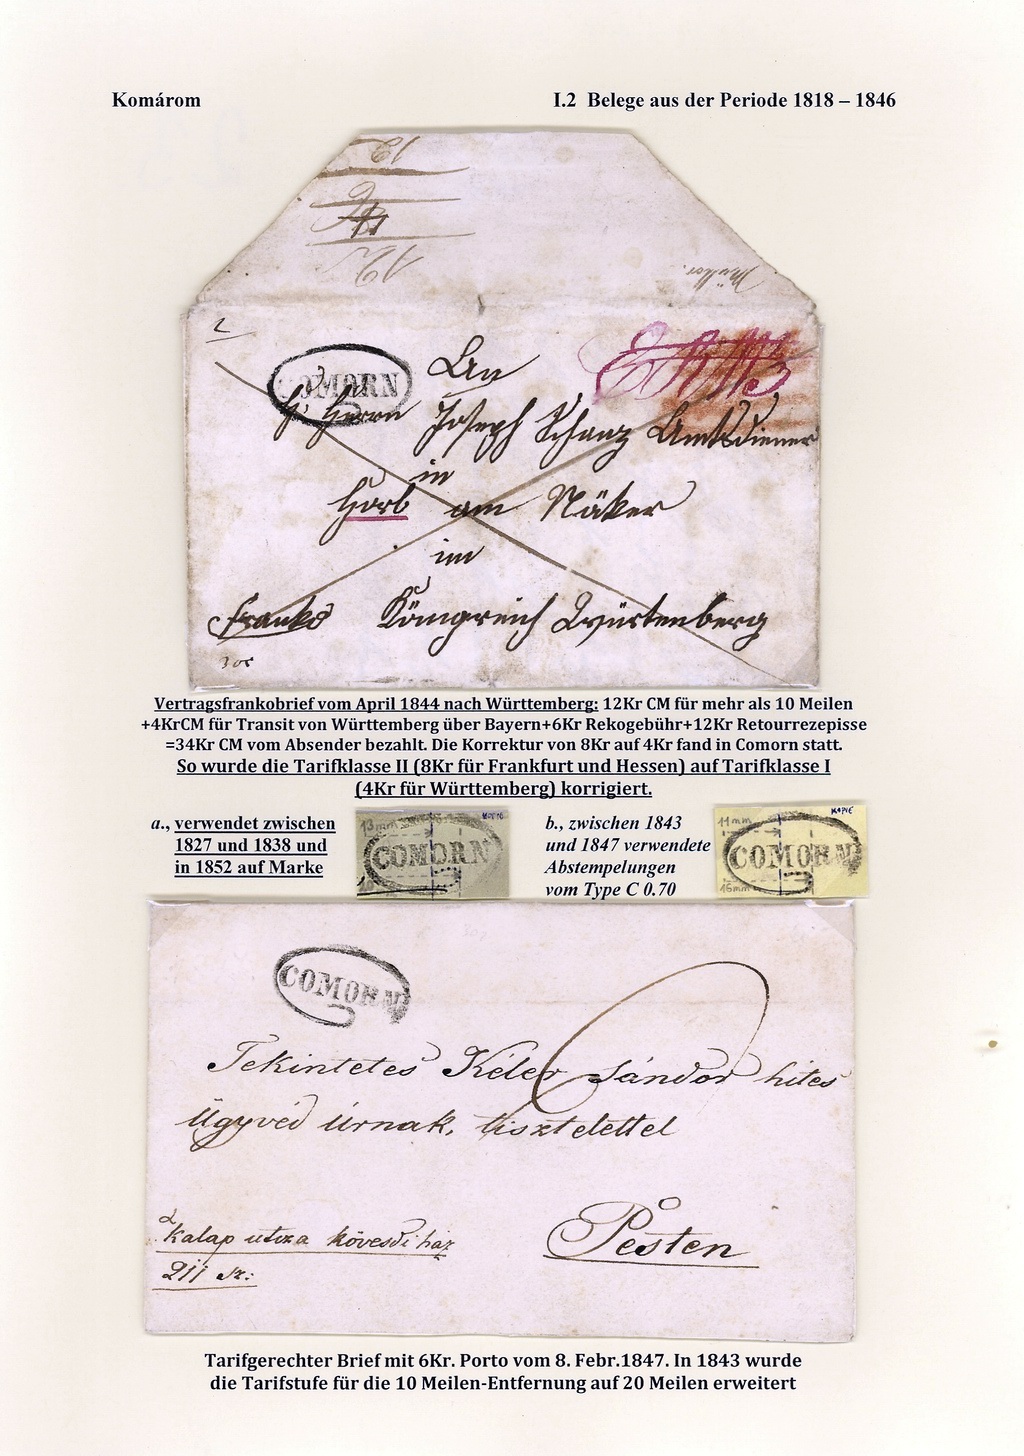 Komárom
I.2 Belege aus der Periode 1818 – 1846
12
12
Müller.
COMORN
An
H: Herrn Joseph Schanz Amtsdiener
in
Horb am Näker
im
franko Köngreich Würtenberg
Vertragsfrankobrief vom April 1844 nach Württemberg: 12Kr CM für mehr als 10 Meilen
+4KrCM für Transit von Württemberg über Bayern+6Kr Rekogebühr+12Kr Retourrezepisse
=34Kr CM vom Absender bezahlt. Die Korrektur von 8Kr auf 4Kr fand in Comorn statt.
So wurde die Tarifklasse II (8Kr für Frankfurt und Hessen) auf Tarifklasse I
(4Kr für Württemberg) korrigiert.
a., verwendet zwischen
1827 und 1838 und
in 1852 auf Marke
13mm
KOPIE
COMORN
b., zwischen 1843
und 1847 verwendete
Abstempelungen
vom Type C 0.70
11mm
KOPIE
COMORN
16mm
COMORN
6
Tekintetes Kéler Sándor hites
ügyvéd úrnak, tisztelettel
Pesten
kalap utza kövesdi ház
211 sz:
Tarifgerechter Brief mit 6Kr. Porto vom 8. Febr.1847. In 1843 wurde
die Tarifstufe für die 10 Meilen-Entfernung auf 20 Meilen erweitert